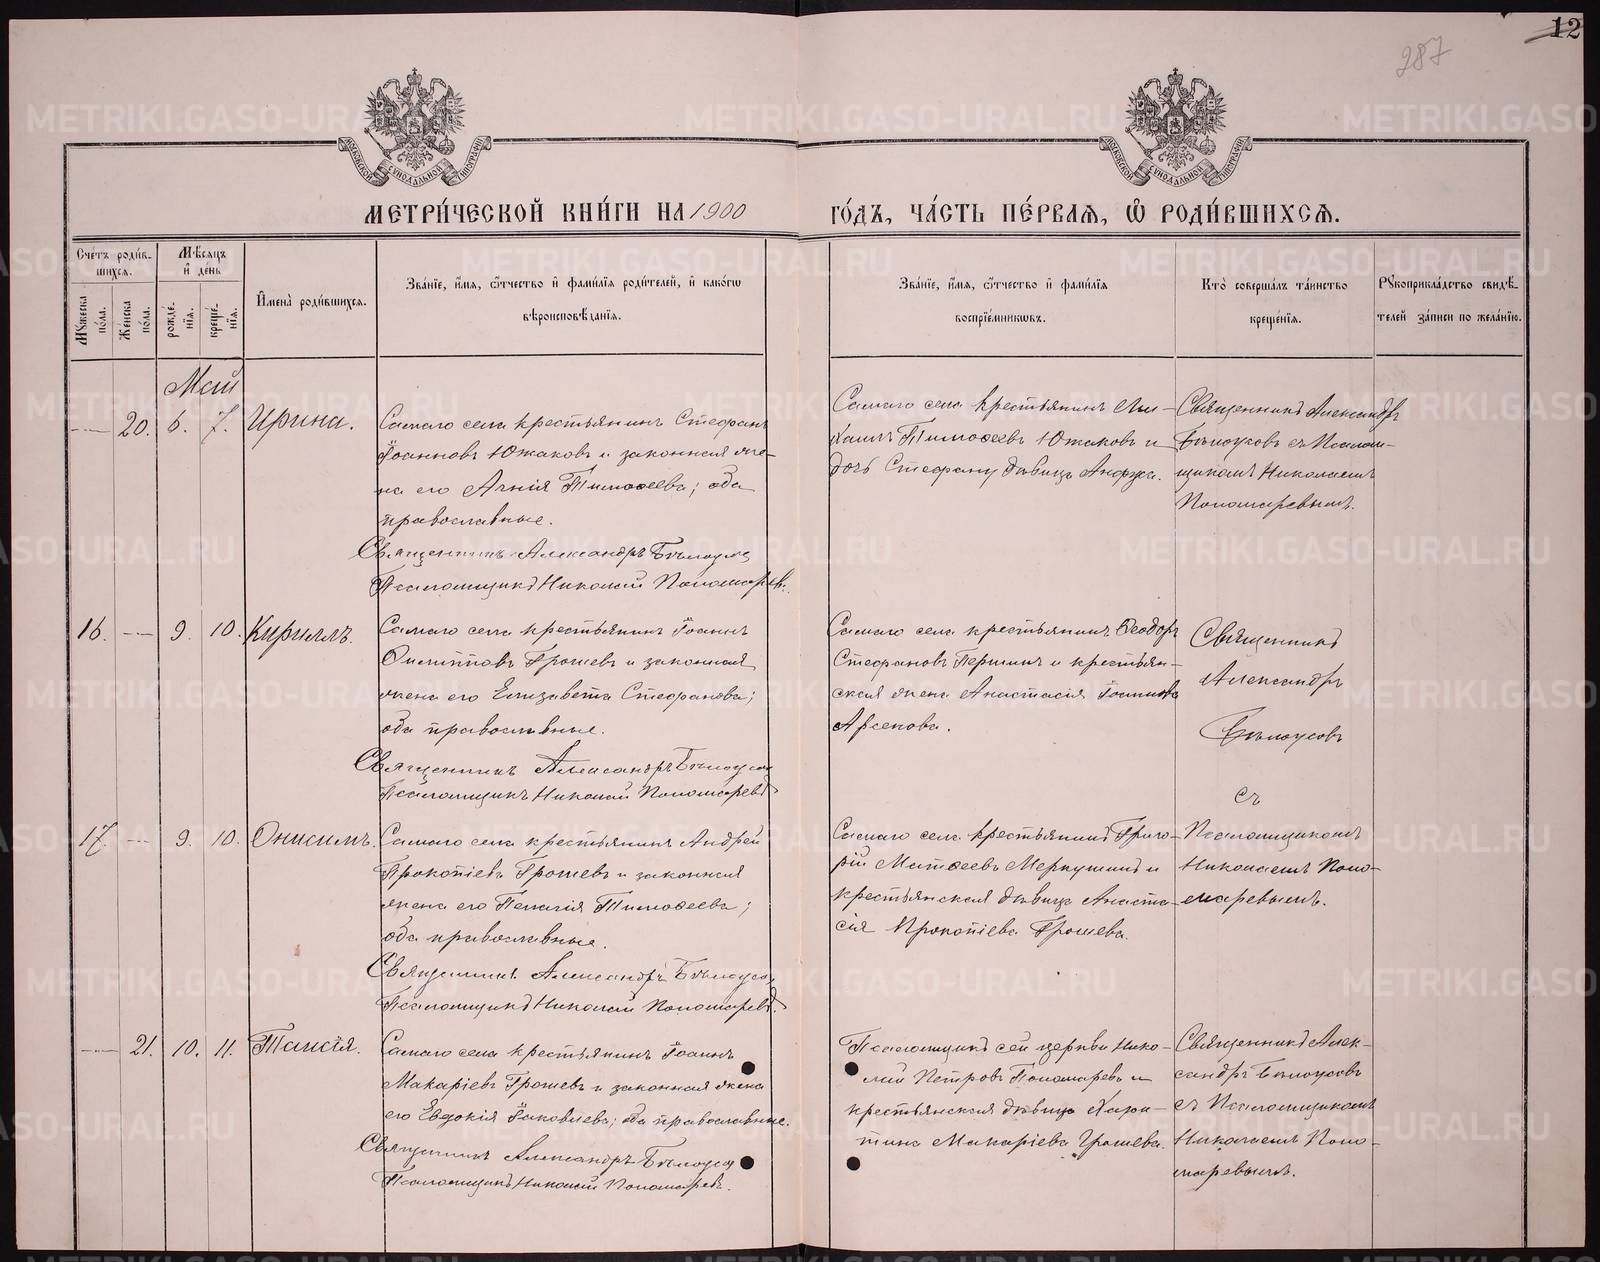 12
287
МЕТРИ́ЧЕСКОЙ КНИ́ГИ НА 1900 ГО́ДЪ, ЧА́СТЬ ПЕ́РВАѦ, Ѡ҆ РОДИ́ВШИХСѦ.
Сче́тъ роди́в-
шихсѧ.
Мѣ́сѧцъ
и҆ де́нь
Мꙋ́жеска
по́ла.
Же́нска
по́ла.
рожде́-
нїѧ.
креще́-
нїѧ.
И҆мена̀ роди́вшихсѧ.
Зва́нїе, и҆́мѧ, ѻ҆́тчество и҆ фами́лїѧ роди́телей, и҆ како́гѡ
вѣроисповѣ́данїѧ.
Зва́нїе, и҆́мѧ, ѻ҆́тчество и҆ фами́лїѧ
воспрїе́мникѡвъ.
Кто̀ соверша́лъ та́инство
креще́нїѧ.
Рꙋкоприкла́дство свидѣ́-
телей за́писи по жела́нїю.
Май
20. 6. 7. Ирина.
Самаго села крестьянинъ Стефанъ
Іоанновъ Южаковъ и законная же-
на его Агнія Тимоѳеева; оба
православные.
Священникъ Александръ Бѣлоусовъ
Псаломщикъ Николай Пономаревъ.
Самаго села крестьянинъ
Тимоѳеевъ Южаковъ и
дочь Стефану дѣвица Анфуза.
Священникъ Александръ
Бѣлоусовъ съ Псалом-
щикомъ Николаемъ
Пономаревымъ.
16. — 9. 10. Кириллъ.
Самаго села крестьянинъ Іоаннъ
Филипповъ Грошевъ и законная
жена его Елизавета Стефанова;
оба православные.
Священникъ Александръ Бѣлоусовъ
Псаломщикъ Николай Пономаревъ
Самаго села крестьянинъ Ѳеодоръ
Стефановъ Першинъ и крестьян-
ская жена Анастасія Іоаннова
Арсенова.
Священникъ
Александръ
Бѣлоусовъ
съ
17. — 9. 10. Онисимъ.
Самаго села крестьянинъ Андрей
Прокопіевъ Грошевъ и законная
жена его Пелагія Тимоѳеева;
оба православные.
Священникъ Александръ Бѣлоусовъ
Псаломщикъ Николай Пономаревъ.
Самаго села крестьянинъ Григо-
рій Матѳеевъ Меркушинъ и
крестьянская дѣвица Анаста-
сія Прокопіева Грошева.
Псаломщикомъ
Николаемъ Поно-
маревымъ.
— 21. 10. 11. Таисія.
Самаго села крестьянинъ Іоаннъ
Макаріевъ Грошевъ и законная жена
его Евдокія Іаковлева; оба православные.
Священникъ Александръ Бѣлоусовъ
Псаломщикъ Николай Пономаревъ.
Псаломщикъ сей церкви Нико-
лай Петровъ Пономаревъ и
крестьянская дѣвица Хари-
тина Макаріева Грошева.
Священникъ Алек-
сандръ Бѣлоусовъ
съ Псаломщикомъ
Николаемъ Поно-
маревымъ.